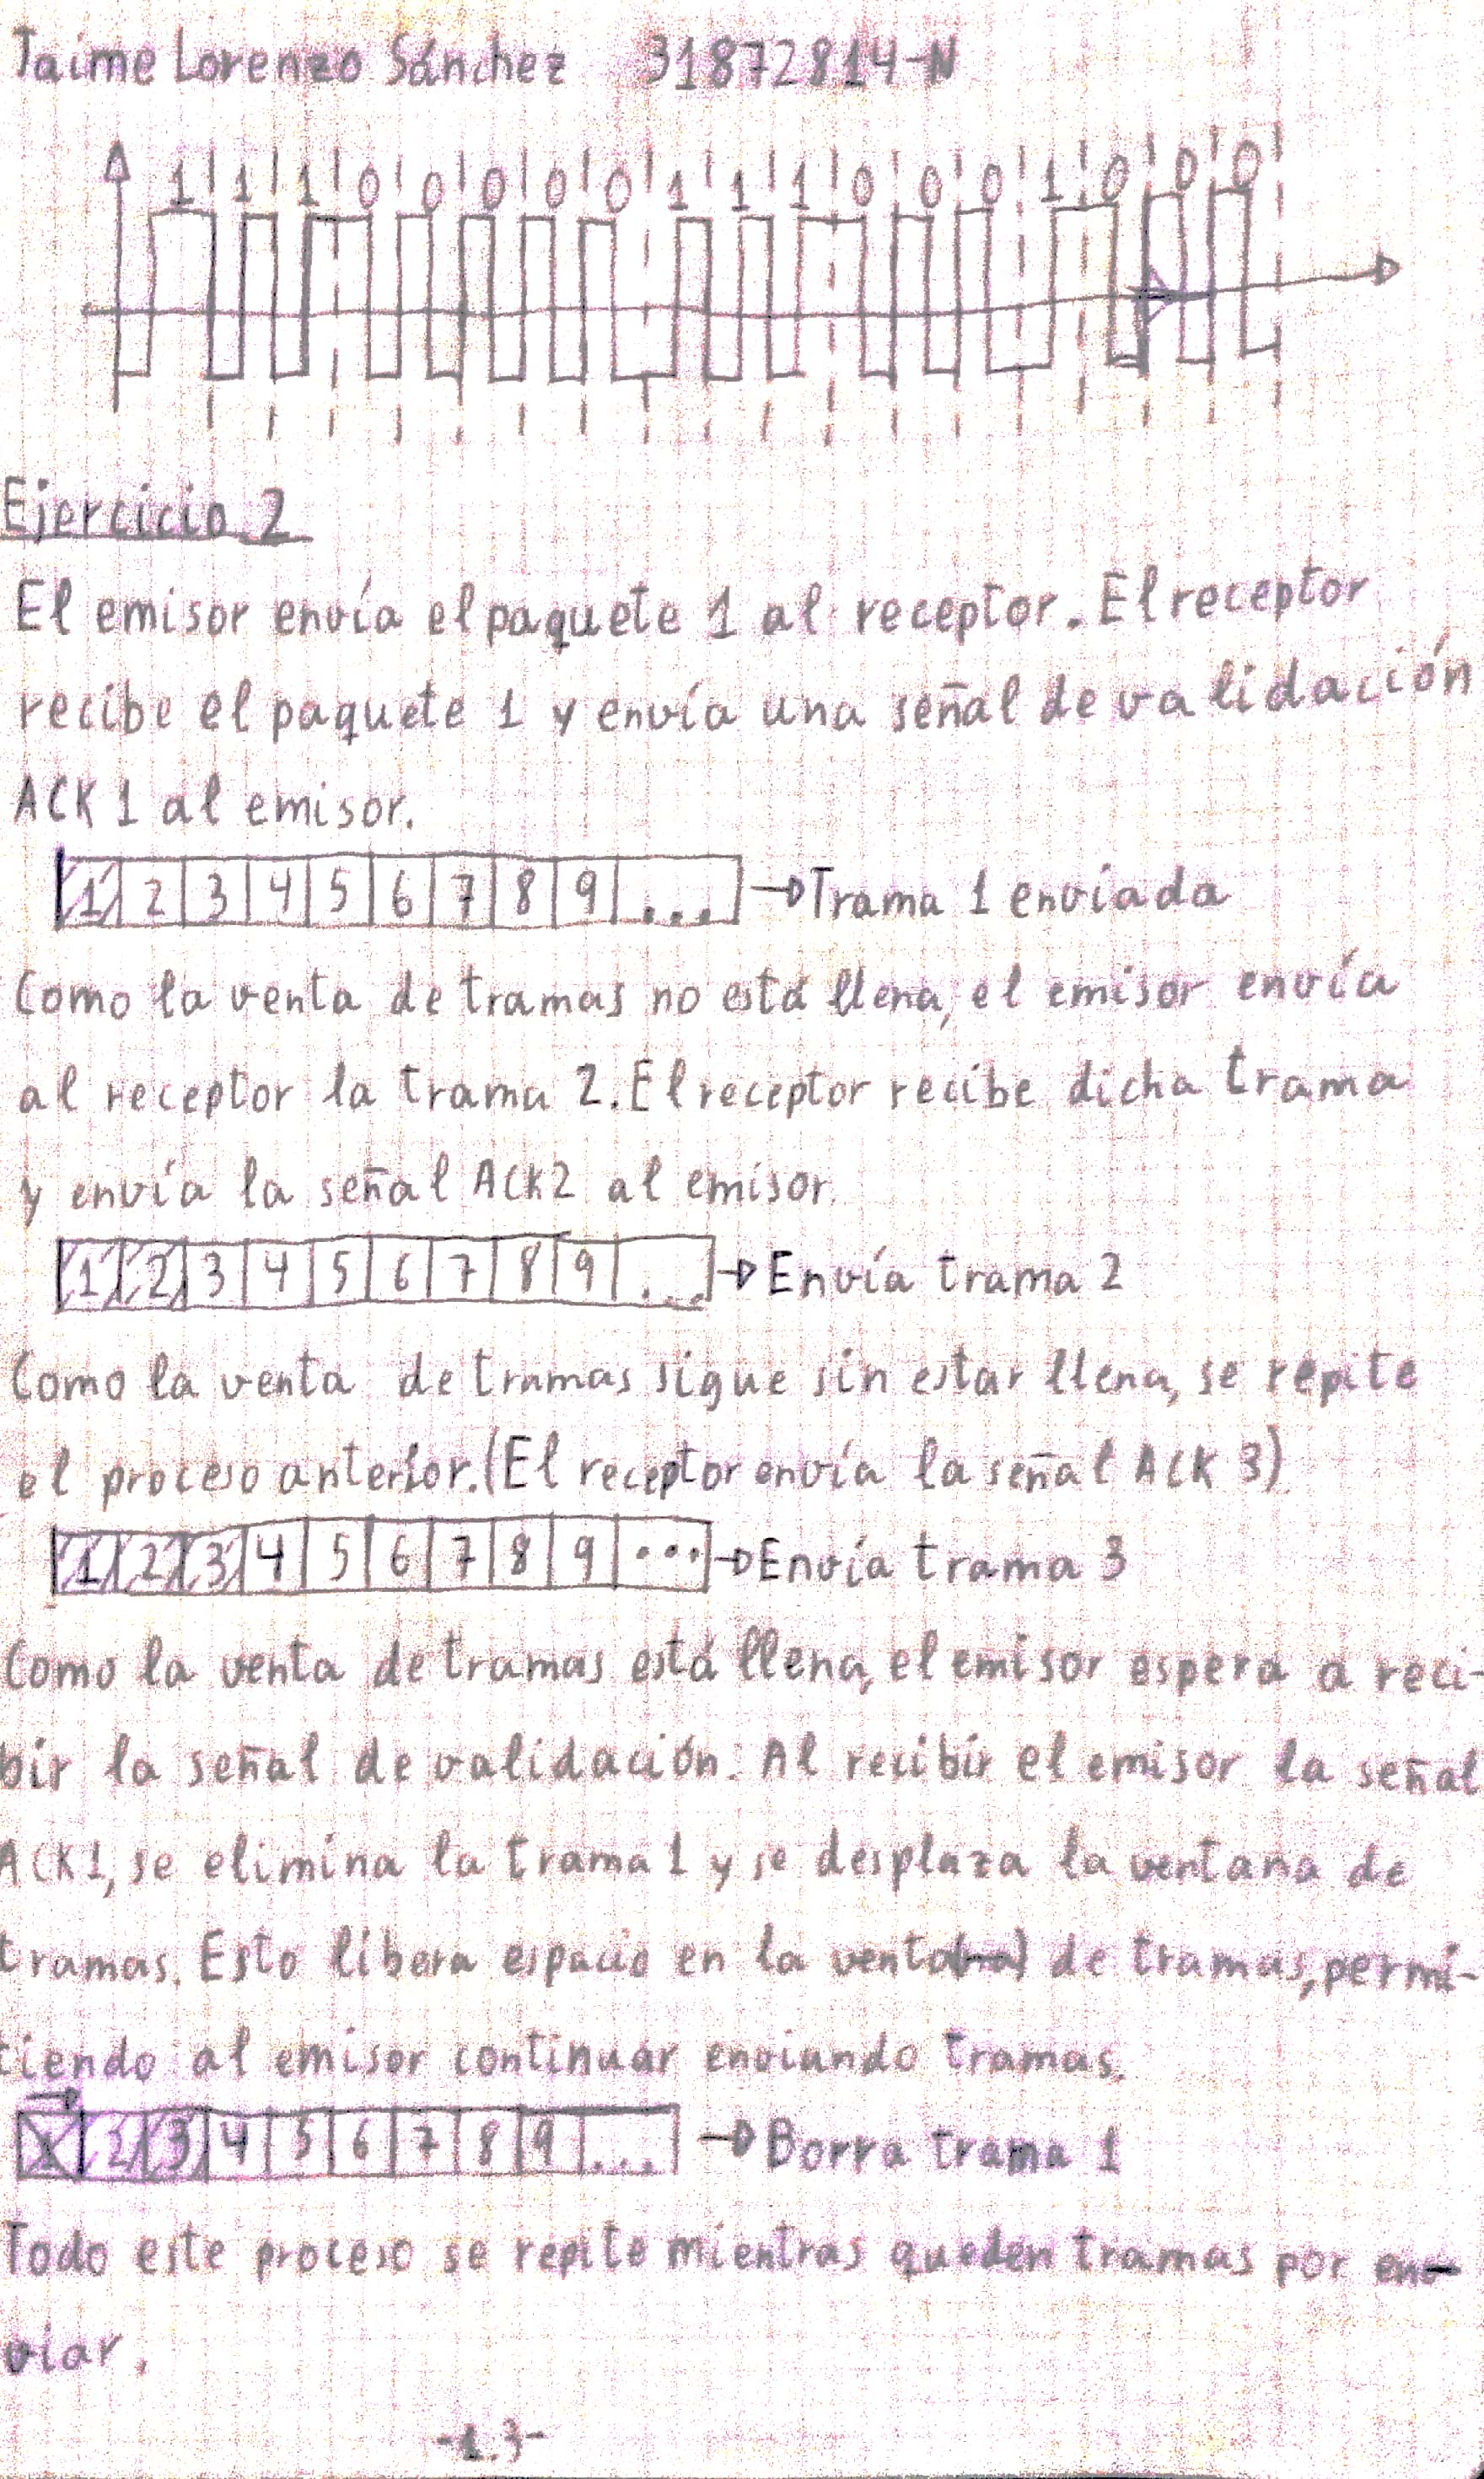 Jaime Lorenzo Sánchez 31872814-N
1 1 1 0 0 0 0 0 1 1 1 0 0 0 1 0 0 0
Ejercicio 2
El emisor envía el paquete 1 al receptor. El receptor
recibe el paquete 1 y envía una señal de validación
ACK 1 al emisor.
1 2 3 4 5 6 7 8 9 ... → Trama 1 enviada
Como la venta de tramas no está llena, el emisor envía
al receptor la trama 2. El receptor recibe dicha trama
y envía la señal ACK2 al emisor.
1 2 3 4 5 6 7 8 9 ... → Envía trama 2
Como la venta de tramas sigue sin estar llena, se repite
el proceso anterior. (El receptor envía la señal ACK 3)
1 2 3 4 5 6 7 8 9 ... → Envía trama 3
Como la venta de tramas está llena, el emisor espera a reci-
bir la señal de validación. Al recibir el emisor la señal
ACK1, se elimina la trama 1 y se desplaza la ventana de
tramas. Esto libera espacio en la venta(na) de tramas, permi-
tiendo al emisor continuar enviando tramas.
1 2 3 4 5 6 7 8 9 ... → Borra trama 1
Todo este proceso se repite mientras queden tramas por en-
viar.
-1.3-